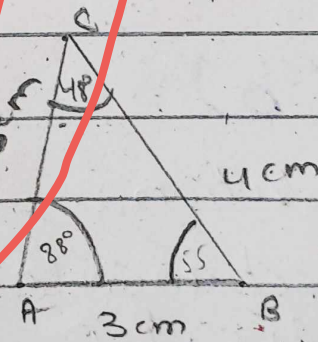 C
48
4 cm
88°
55
A
B
3 cm